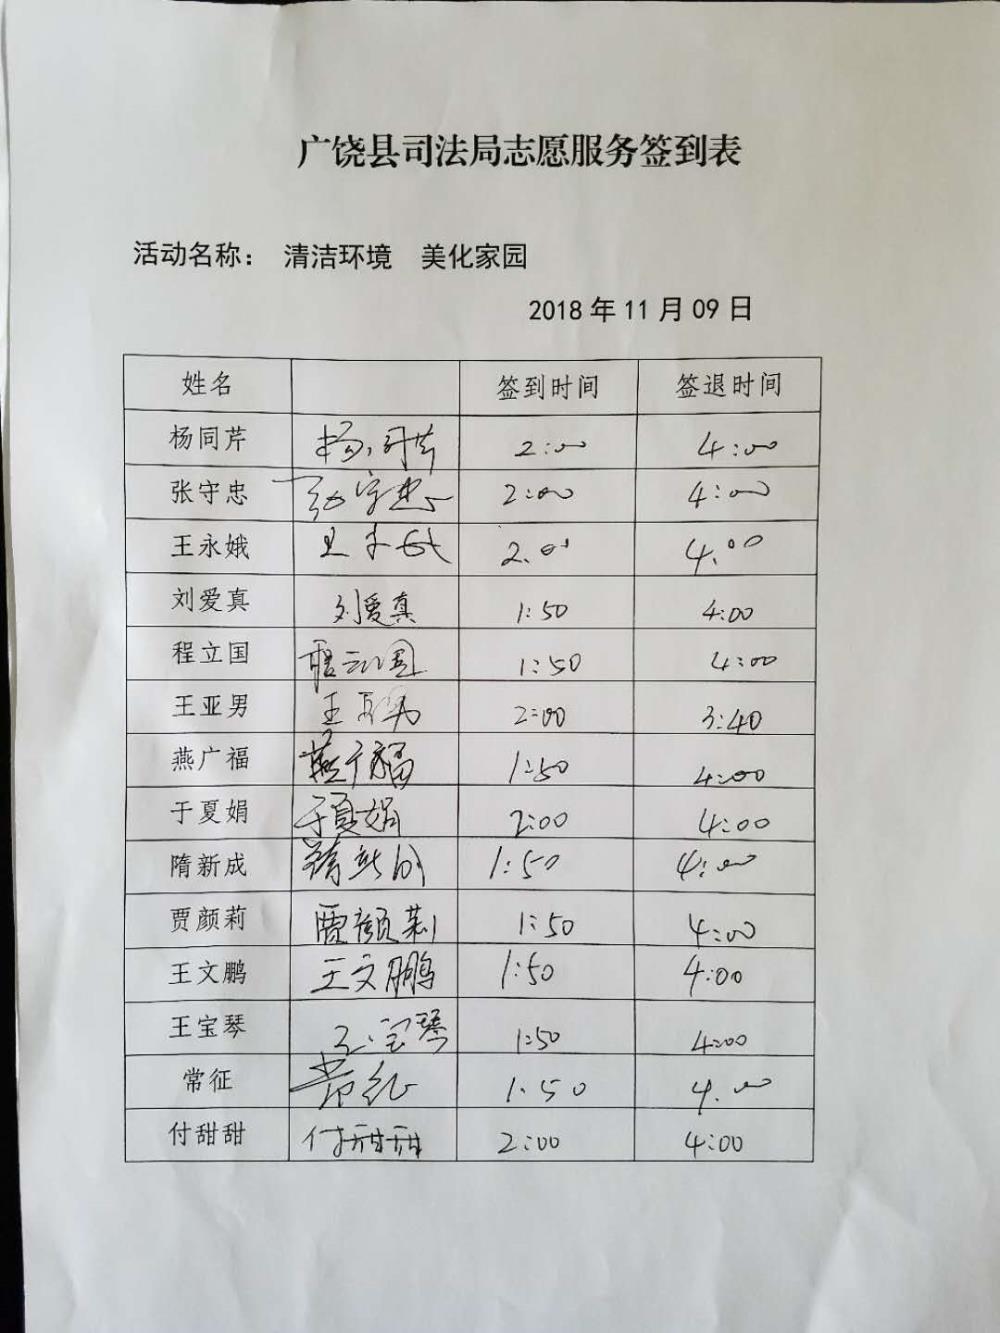 广饶县司法局志愿服务签到表
活动名称： 清洁环境 美化家园
2018 年 11 月 09 日
姓名 签到时间 签退时间
杨同芹 杨同芹 2:00 4:00
张守忠 张守忠 2:00 4:00
王永娥 王永娥 2:00 4:00
刘爱真 刘爱真 1:50 4:00
程立国 程立国 1:50 4:00
王亚男 王亚男 2:00 3:40
燕广福 燕广福 1:50 4:00
于夏娟 于夏娟 2:00 4:00
隋新成 隋新成 1:50 4:00
贾颜莉 贾颜莉 1:50 4:00
王文鹏 王文鹏 1:50 4:00
王宝琴 王宝琴 1:50 4:00
常征 常征 1:50 4:00
付甜甜 付甜甜 2:00 4:00